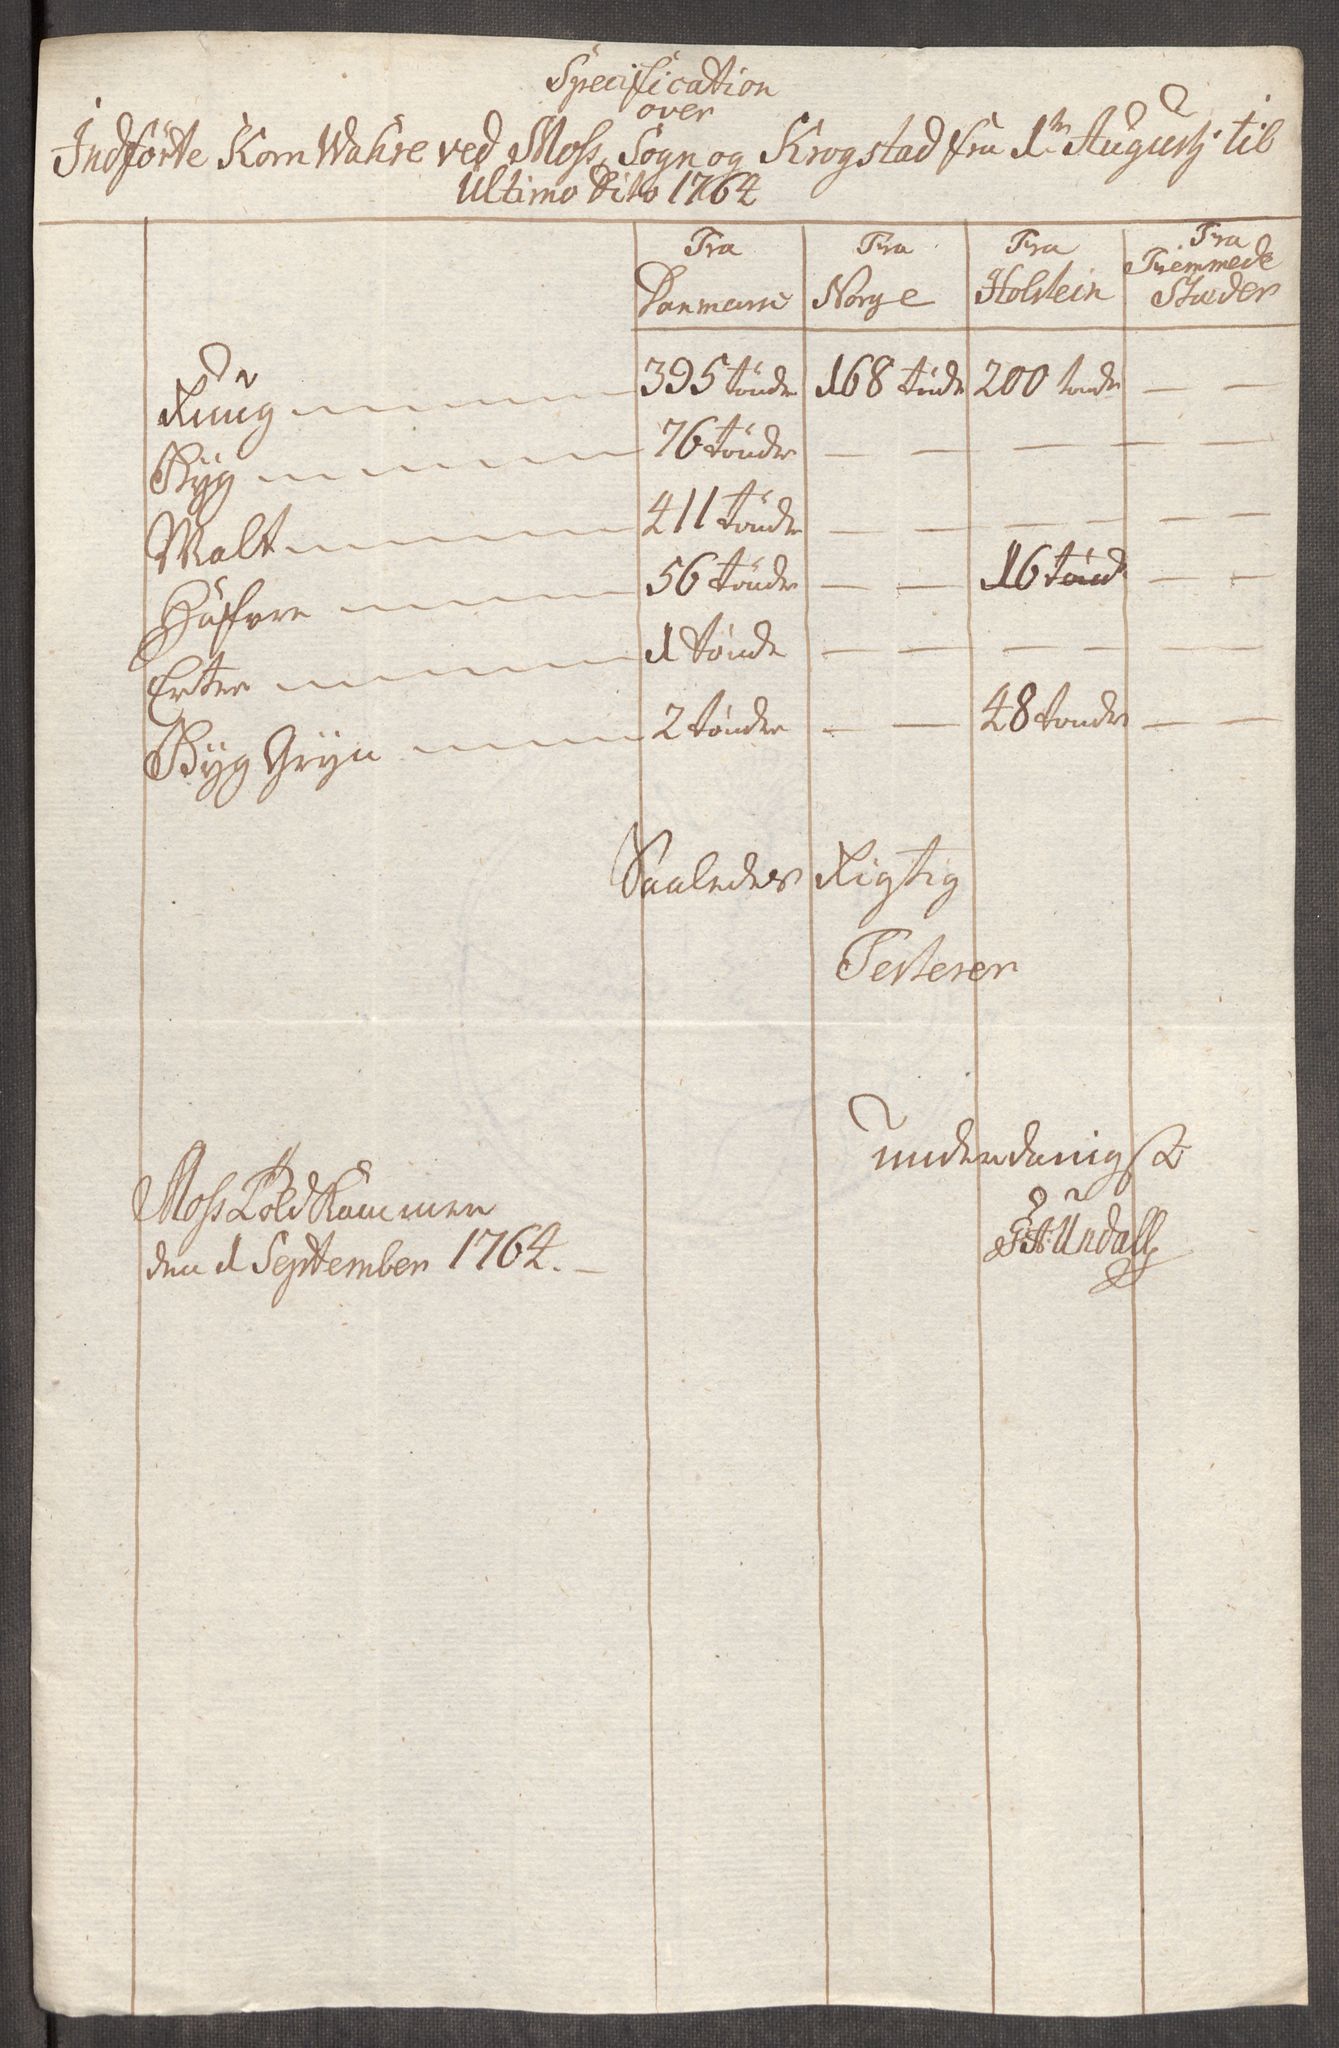 Specification
over
Indförte Korn Wahre ved Moss, Sogn og Krogstad fra 1tn Augustj til
Ultimo Dito 1764
Fra Danmarc Fra Norge Fra Holstein Fra Fremmede Stæder
Rug 395 tönder 168 tönde 200 tonder — —
Byg 76 tönder — — — — — —
Malt 411 tönder — — — — — —
Haffre 56 tönder — — 16 tönd — —
Erter 1 tönde — — — — — —
Byg Gryn 2 tönder — — 48 tonder — —
Saaledes Rigtig
Testerer
underdanigst
Moss Told Kammer
den 1 September 1764.
Undall